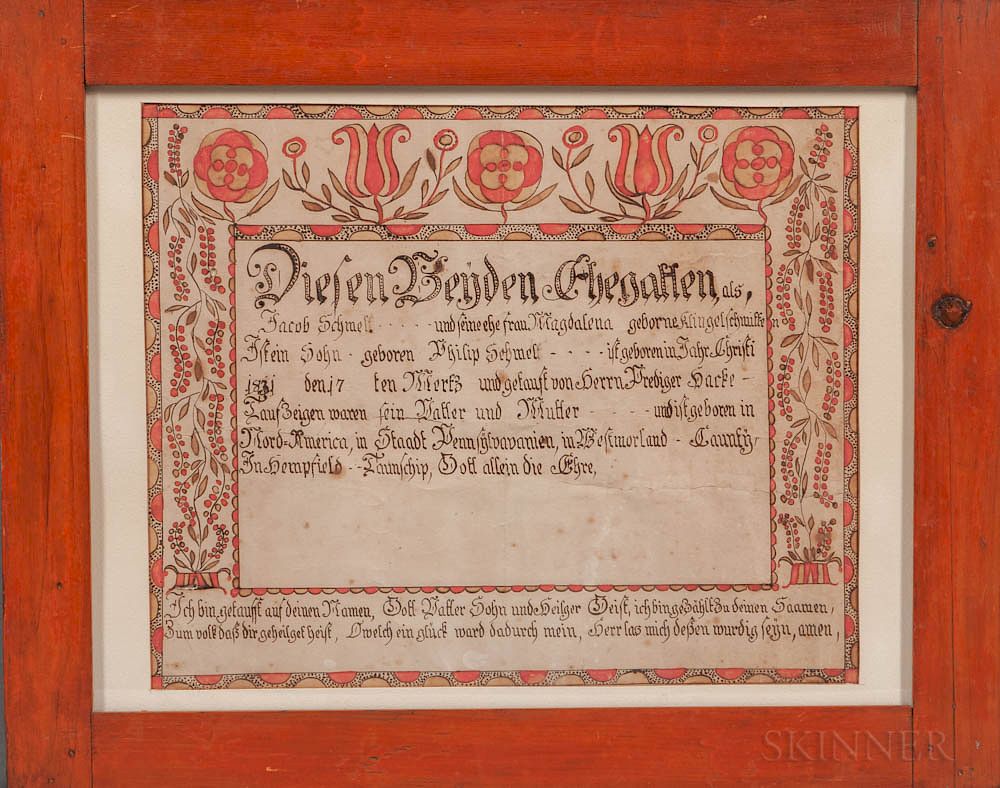 Diesen Beyden Ehegatten, als,
Jacob Schmelt - - - - - und seine ehe frau, Magdalena geborne Klingelschmittin
Ist ein Sohn - geboren Philip Schmel - - - - ist geboren in Jahr Christi
den 17 ten Mertz und getauft von Herrn Prediger Hacke -
Taufzeigen waren sein Vatter und Mutter - - - - - und ist geboren in
Nord-America, in Staadt Pennsylvavanien, in Westmorland - Caunty,
In Hempfield - - Taunschip, Gott allein die Ehre,
Ich bin getaufft auf deinen Namen, Gott Vatter Sohn und Heilger Geist, ich bin gezählt zu deinen Saamen,
Zum volk daß dir geheilget heist, O welch ein glück ward dadurch mein, Herr las mich deßen wurdig seyn, amen,
SKINNER